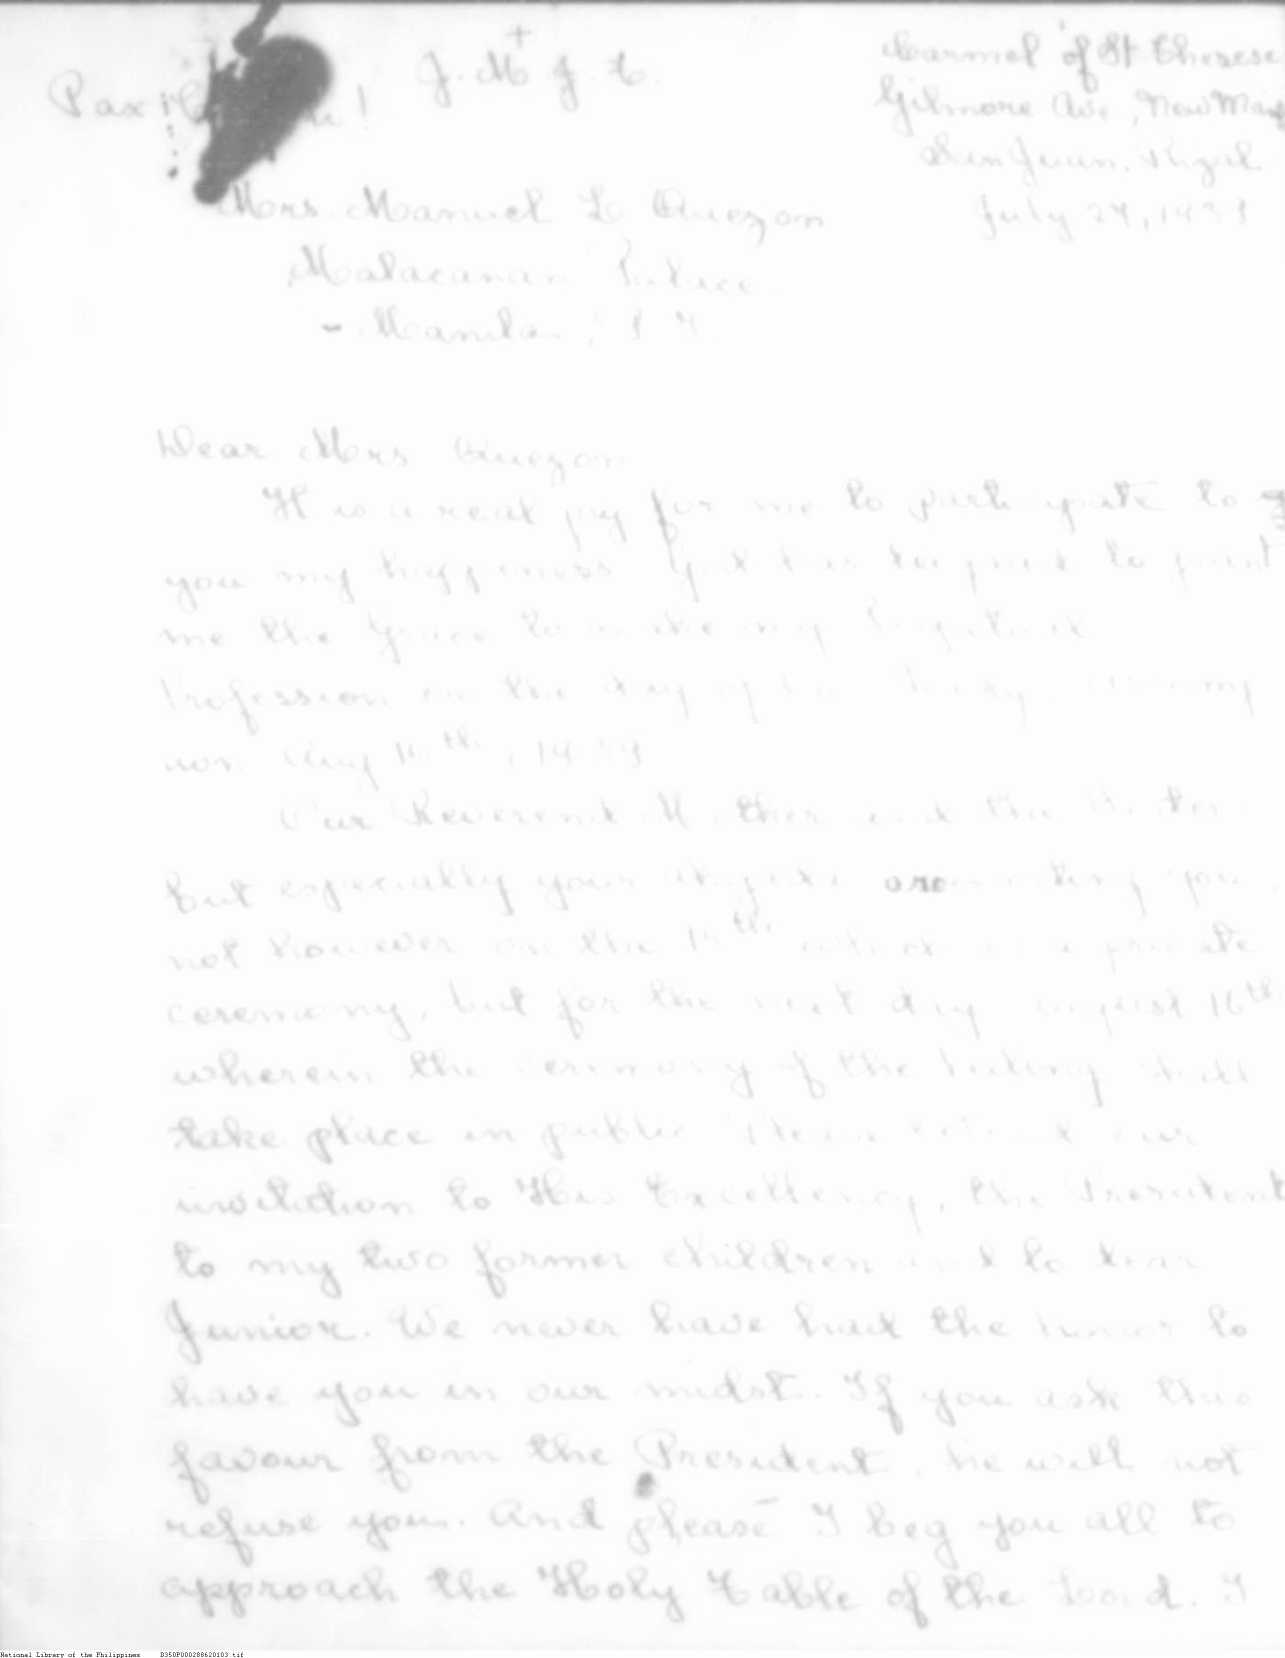 J. M. J. T.
Pax !
Carmel of St Therese
Gilmore Ave, New Man
San Juan, Rizal
July 27, 1939
Mrs. Manuel L Quezon
Malacanan Palace
- Manila, P I
Dear Mrs Quezon
It is a real joy for me to participate to
you my happiness. God has deigned to grant
me the grace to make my Perpetual
Profession on the day of
Aug 15th, 1939
Our Reverend Mother and the Sisters
but especially your are inviting you,
not however on the 15th which is a private
ceremony, but for the next day august 16th
wherein the ceremony of the Veiling shall
take place in public. Please extend our
invitation to His Excellency, the President
to my two former children and to dear
Junior. We never have had the honor to
have you in our midst. If you ask this
favour from the President, he will not
refuse you. And please I beg you all to
approach the Holy Table of the Lord. I
National Library of the Philippines D350P000288620103.tif